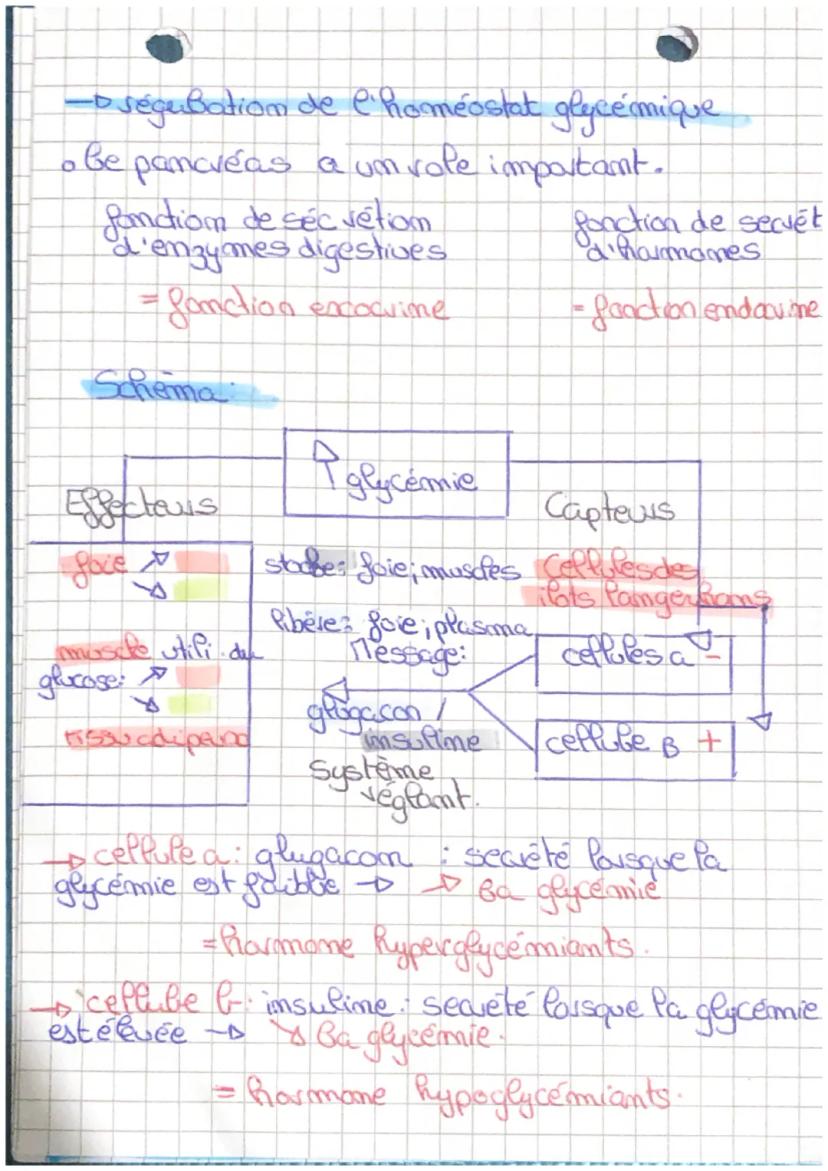 → régulation de l'homéostat glycémique
• le pancréas a un role important.
fonction de sécrétion
d'enzymes digestives
= fonction exocrine
fonction de secrét
d'hormones
= fonction endocrine
Schéma:
↗ glycémie
Effecteurs
Capteurs
foie ↗
↘
muscle utili. du
glucose: ↗
↘
tissu adipeux
stocke: foie; muscles
libère: foie; plasma
Message:
glugacon /
insuline
système
réglant.
Cellules des
ilots Langerhans
cellules a -
cellule B +
→ cellule a: glugacon : secrété lorsque la
glycémie est faible → ↗ la glycémie
= hormone hyperglycémiants.
→ cellule b: insuline: secrété lorsque la glycémie
est élevée → ↘ la glycémie.
= hormone hypoglycémiants.